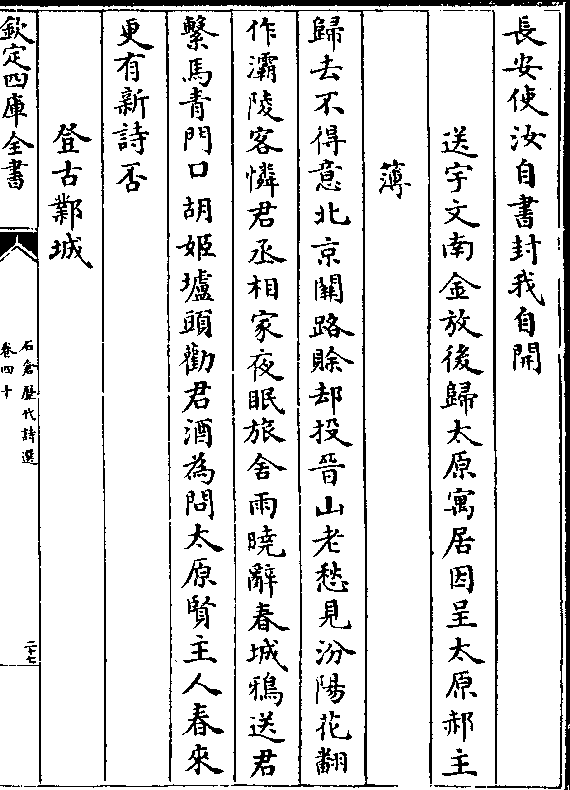 長安使汝自書封我自開
送宇文南金放後歸太原寓居因呈太原郝主
薄
歸去不得意北京關路賖却投晉山老愁見汾陽花翻
作灞陵客憐君丞相家夜眠旅舍雨曉辭春城鴉送君
繫馬青門口胡姬壚頭勸君酒為問太原賢主人春來
更有新詩否
登古鄴城
欽定四庫全書
石倉歷代詩選
卷四十
二十七